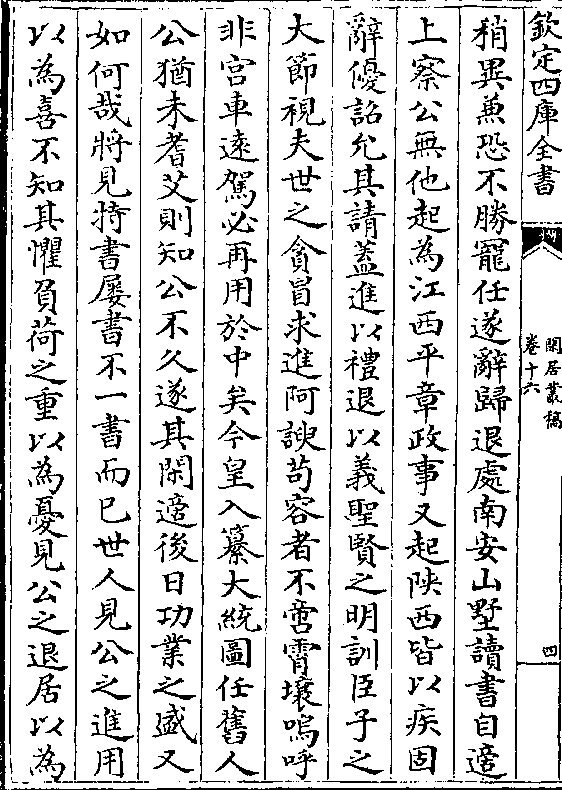 欽定四庫全書
閑居叢稿
卷十六
四
稍異兼恐不勝寵任遂辭歸退處南安山墅讀書自適
上察公無他起為江西平章政事又起陝西皆以疾固
辭優詔允其請蓋進以禮退以義聖賢之明訓臣子之
大節視夫世之貪冒求進阿諛苟容者不啻霄壤嗚呼
非宮車遠駕必再用於中矣今皇入纂大統圖任舊人
公猶未耆艾則知公不久遂其閑適後日功業之盛又
如何哉將見特書屢書不一書而已世人見公之進用
以為喜不知其懼負荷之重以為憂見公之退居以為